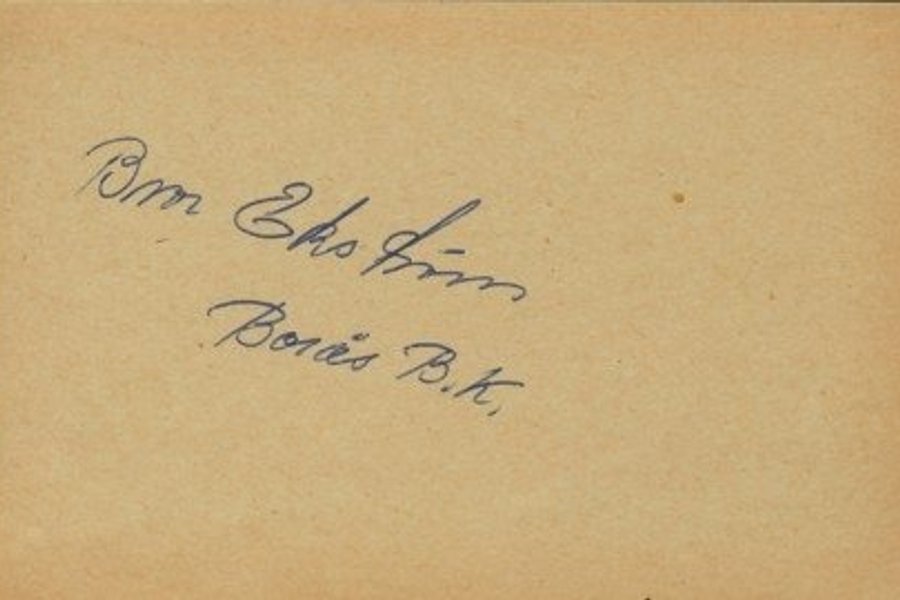 Bror Ekström
Borås B.K.